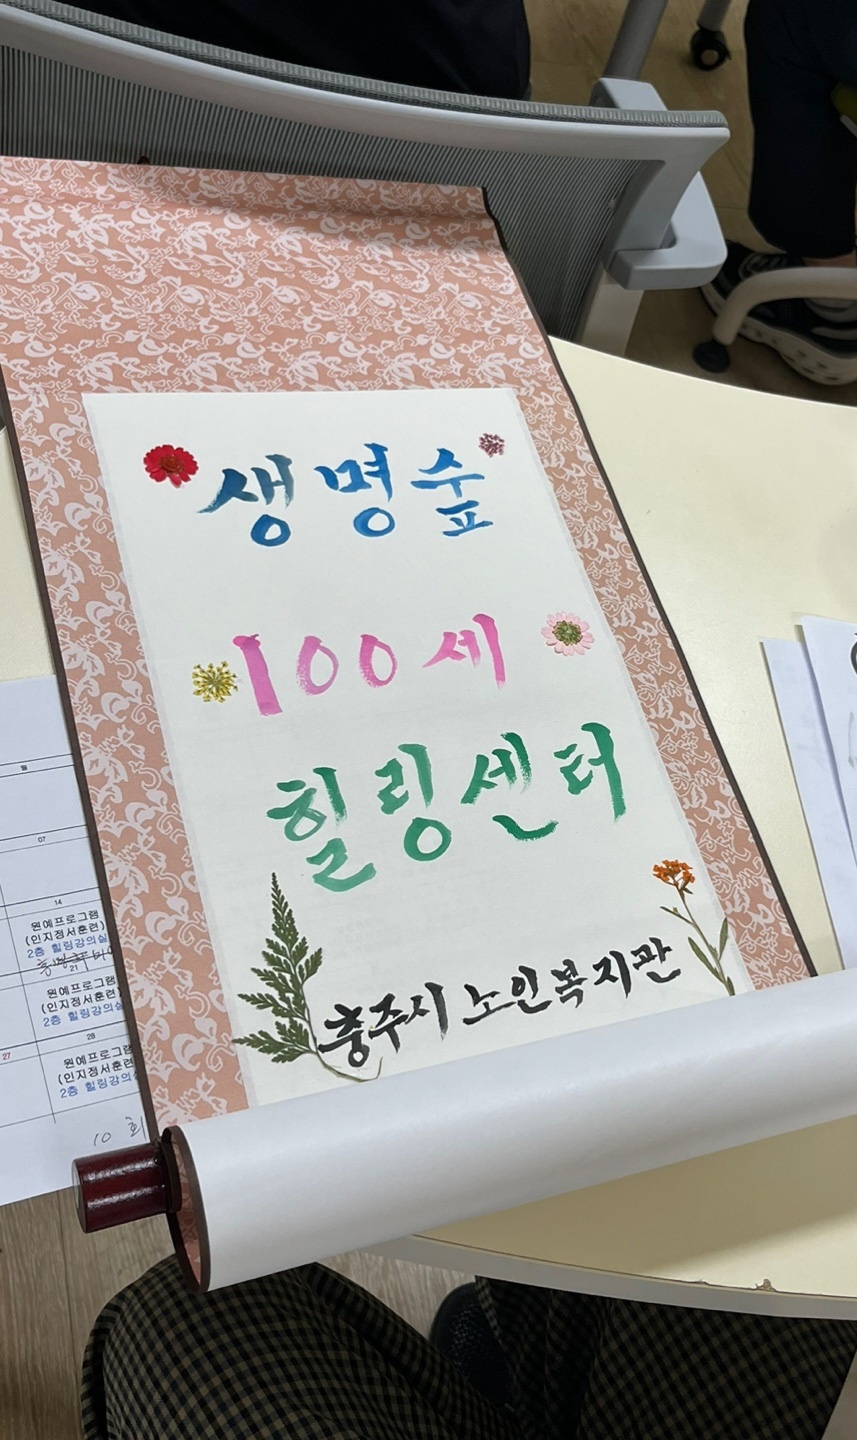 생명숲
100세
힐링센터
충주시 노인복지관
07
14
원예프로그램
(인지정서훈련)
2층 힐링강의실
21
원예프로그램
(인지정서훈련)
2층 힐링강의실
27
28
원예프로그램
(인지정서훈련)
2층 힐링강의실
10 회